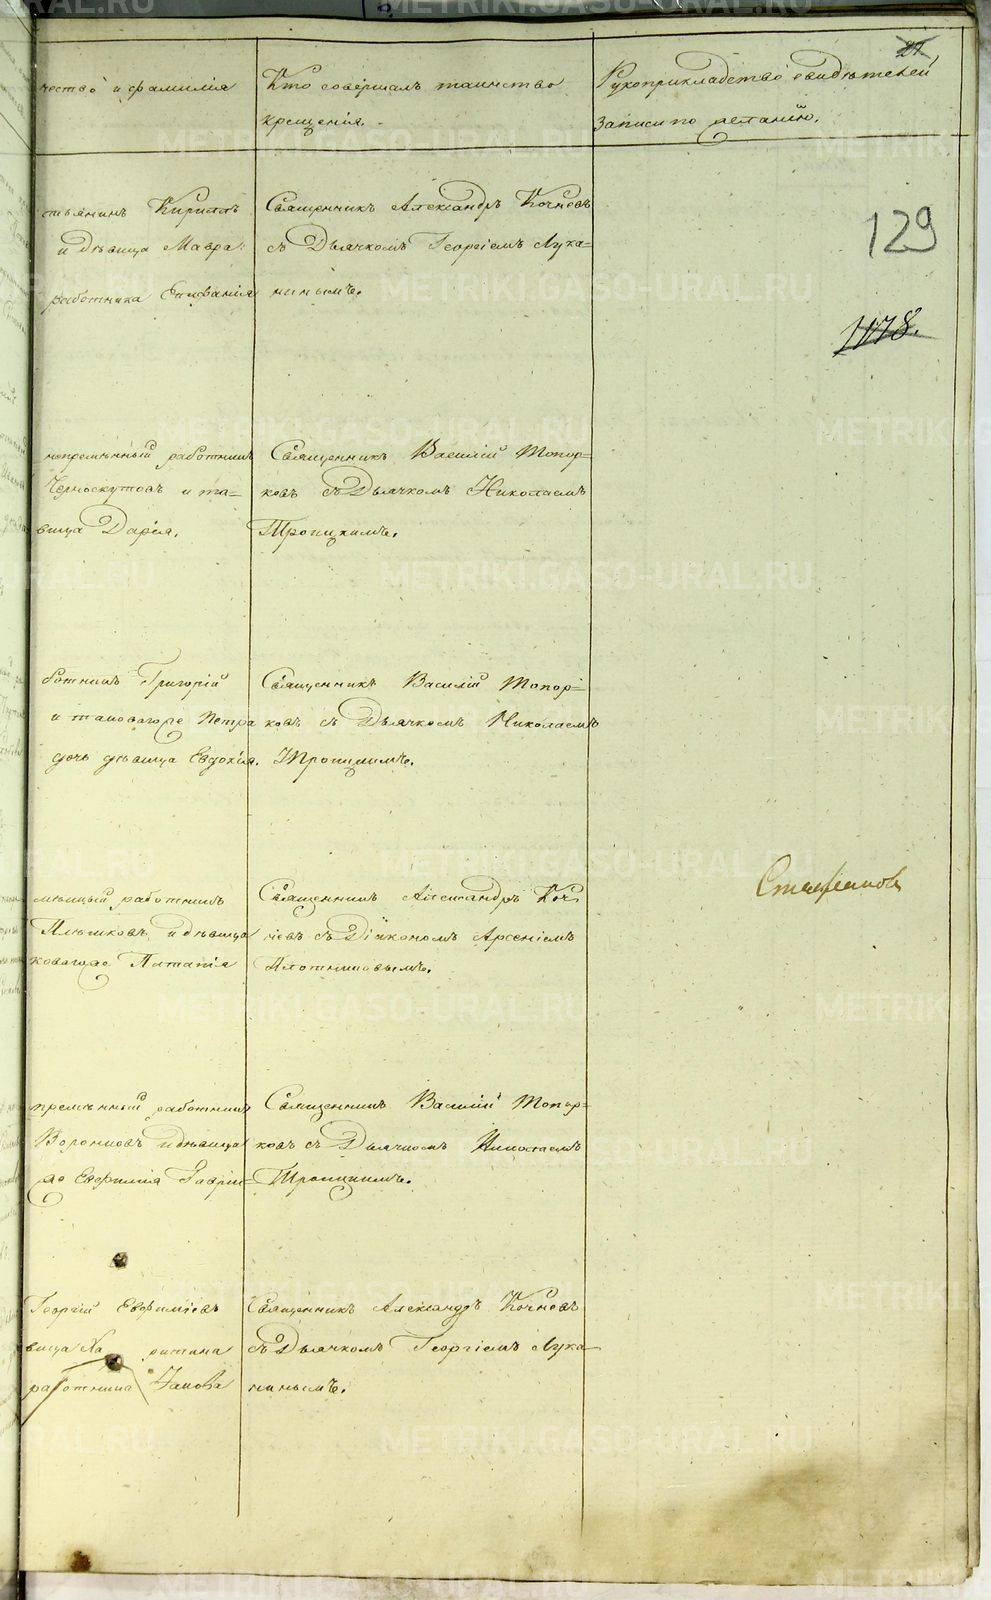 чество и фамилія
Кто совершалъ таинство
крещенія.
Рукоприкладство свидѣтелей
записи по желанію.
21
129
1178.
тьянинъ Кириллъ
и дѣвица Мавра
работника Епифанія
Священникъ Александръ Кочневъ
съ Дьячкомъ Георгіемъ Лука-
нинымъ.
непремѣнный работникъ
Черноскутовъ и та-
вица Дарія.
Священникъ Василій Топор-
ковъ съ Дьячкомъ Николаемъ
Троицкимъ.
ботникъ Григорій
и таковагоже Петра
дочь дѣвица Евдокія.
Священникъ Василій Топор-
ковъ съ Дьячкомъ Николаемъ
Троицкимъ.
мѣнный работникъ
и дѣвица
коваго же
Священникъ Александръ Коч-
невъ съ Діакономъ Арсеніемъ
Плотниковымъ.
Стефановъ
премѣнный работникъ
Воронцовъ и дѣвица
же Евфимія Гаврі-
Священникъ Василій Топор-
ковъ съ Дьячкомъ Николаемъ
Троицкимъ.
Георгій Евфиміевъ
вица Харитина
работника Іакова
Священникъ Александръ Кочневъ
съ Дьячкомъ Георгіемъ Лука-
нинымъ.
METRIKI.GASO-URAL.RU